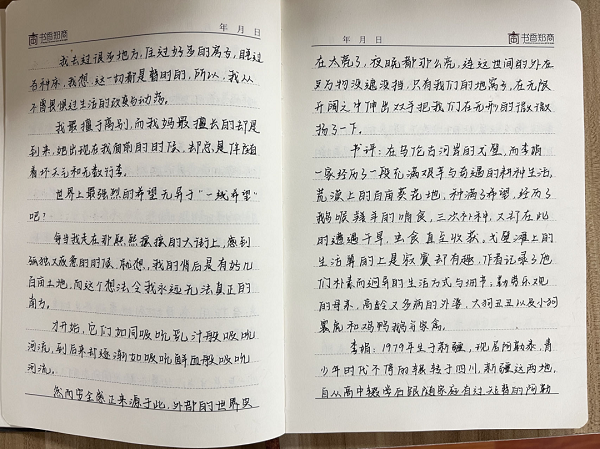 年 月 日
书香知商
我去过很多地方,住过好多的房子,睡过
各种床,我想,这一切都是暂时的,所以,我从
不曾畏惧过生活的改变与动荡。
我最擅于离别,而我妈最擅长的却是
到来,她出现在我面前的时候,却总是伴随
着坏天气和无数行李。
世界上最强烈的希望无异于"一线希望"
吧?
每当我走在那熙熙攘攘的大街上,感到
孤独又疲惫的时候,就想,我的背后是有好几
百亩土地,而这个想法令我永远无法真正的
才开始,它们如同吸吮乳汁般吸吮
河流,到后来却逐渐如吸吮鲜血般吸吮
河流。
然而安全感正来源于此,外部的世界实
年 月 日
书香知商
在太荒了,夜晚都那么荒,连这世间的外在
万物没遮没挡,只有我们的地窝子,在无限
开阔之中伸出双手把我们在无形的微微
挡了一下。
书评:在乌伦古河岸的戈壁,而李娟
一家经历了一段充满艰辛与奇遇的种种生活,
荒漠上的百亩葵花地,种满了希望,经历了
鹅喉羚羊的啃食,三次补种,又对在此
时遭遇干旱,虫食直至收获,戈壁滩上的
生活等的上是寂寞却有趣,作者记录了她
们朴素而迥异的生活方式与细节;勤劳乐观
的母亲,高龄又多病的外婆,大狗丑丑以及小狗
赛虎和鸡鸭鹅与家禽。
李娟:1979年生于新疆,现居阿勒泰,青
少年时代不停的辗转于四川,新疆这两地,
自从高中辍学后跟随家庭有过短暂的阿勒